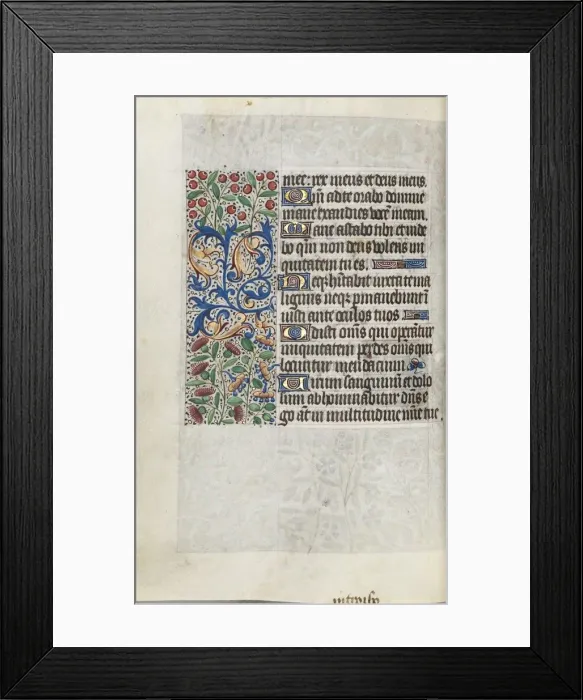 mee: rex meus et deus meus.
Qm̄ ad te orabo domine
mane exaudies vocē meam.
Mane astabo tibi et vide
bo qm̄ non deus volens ini
quitatem tu es.
Neqȝ h̄itabit iuxta te ma
lignus neqȝ p̄manebunt ī
iusti ante oculos tuos
Odisti om̄s qui oper̄atur
iniquitatem p̱des om̄s qui
locuntur mendacium.
Uirum sanguinū et dolo
sum abhominabitur dn̄s e
go aūt in multitudine mīe tue.